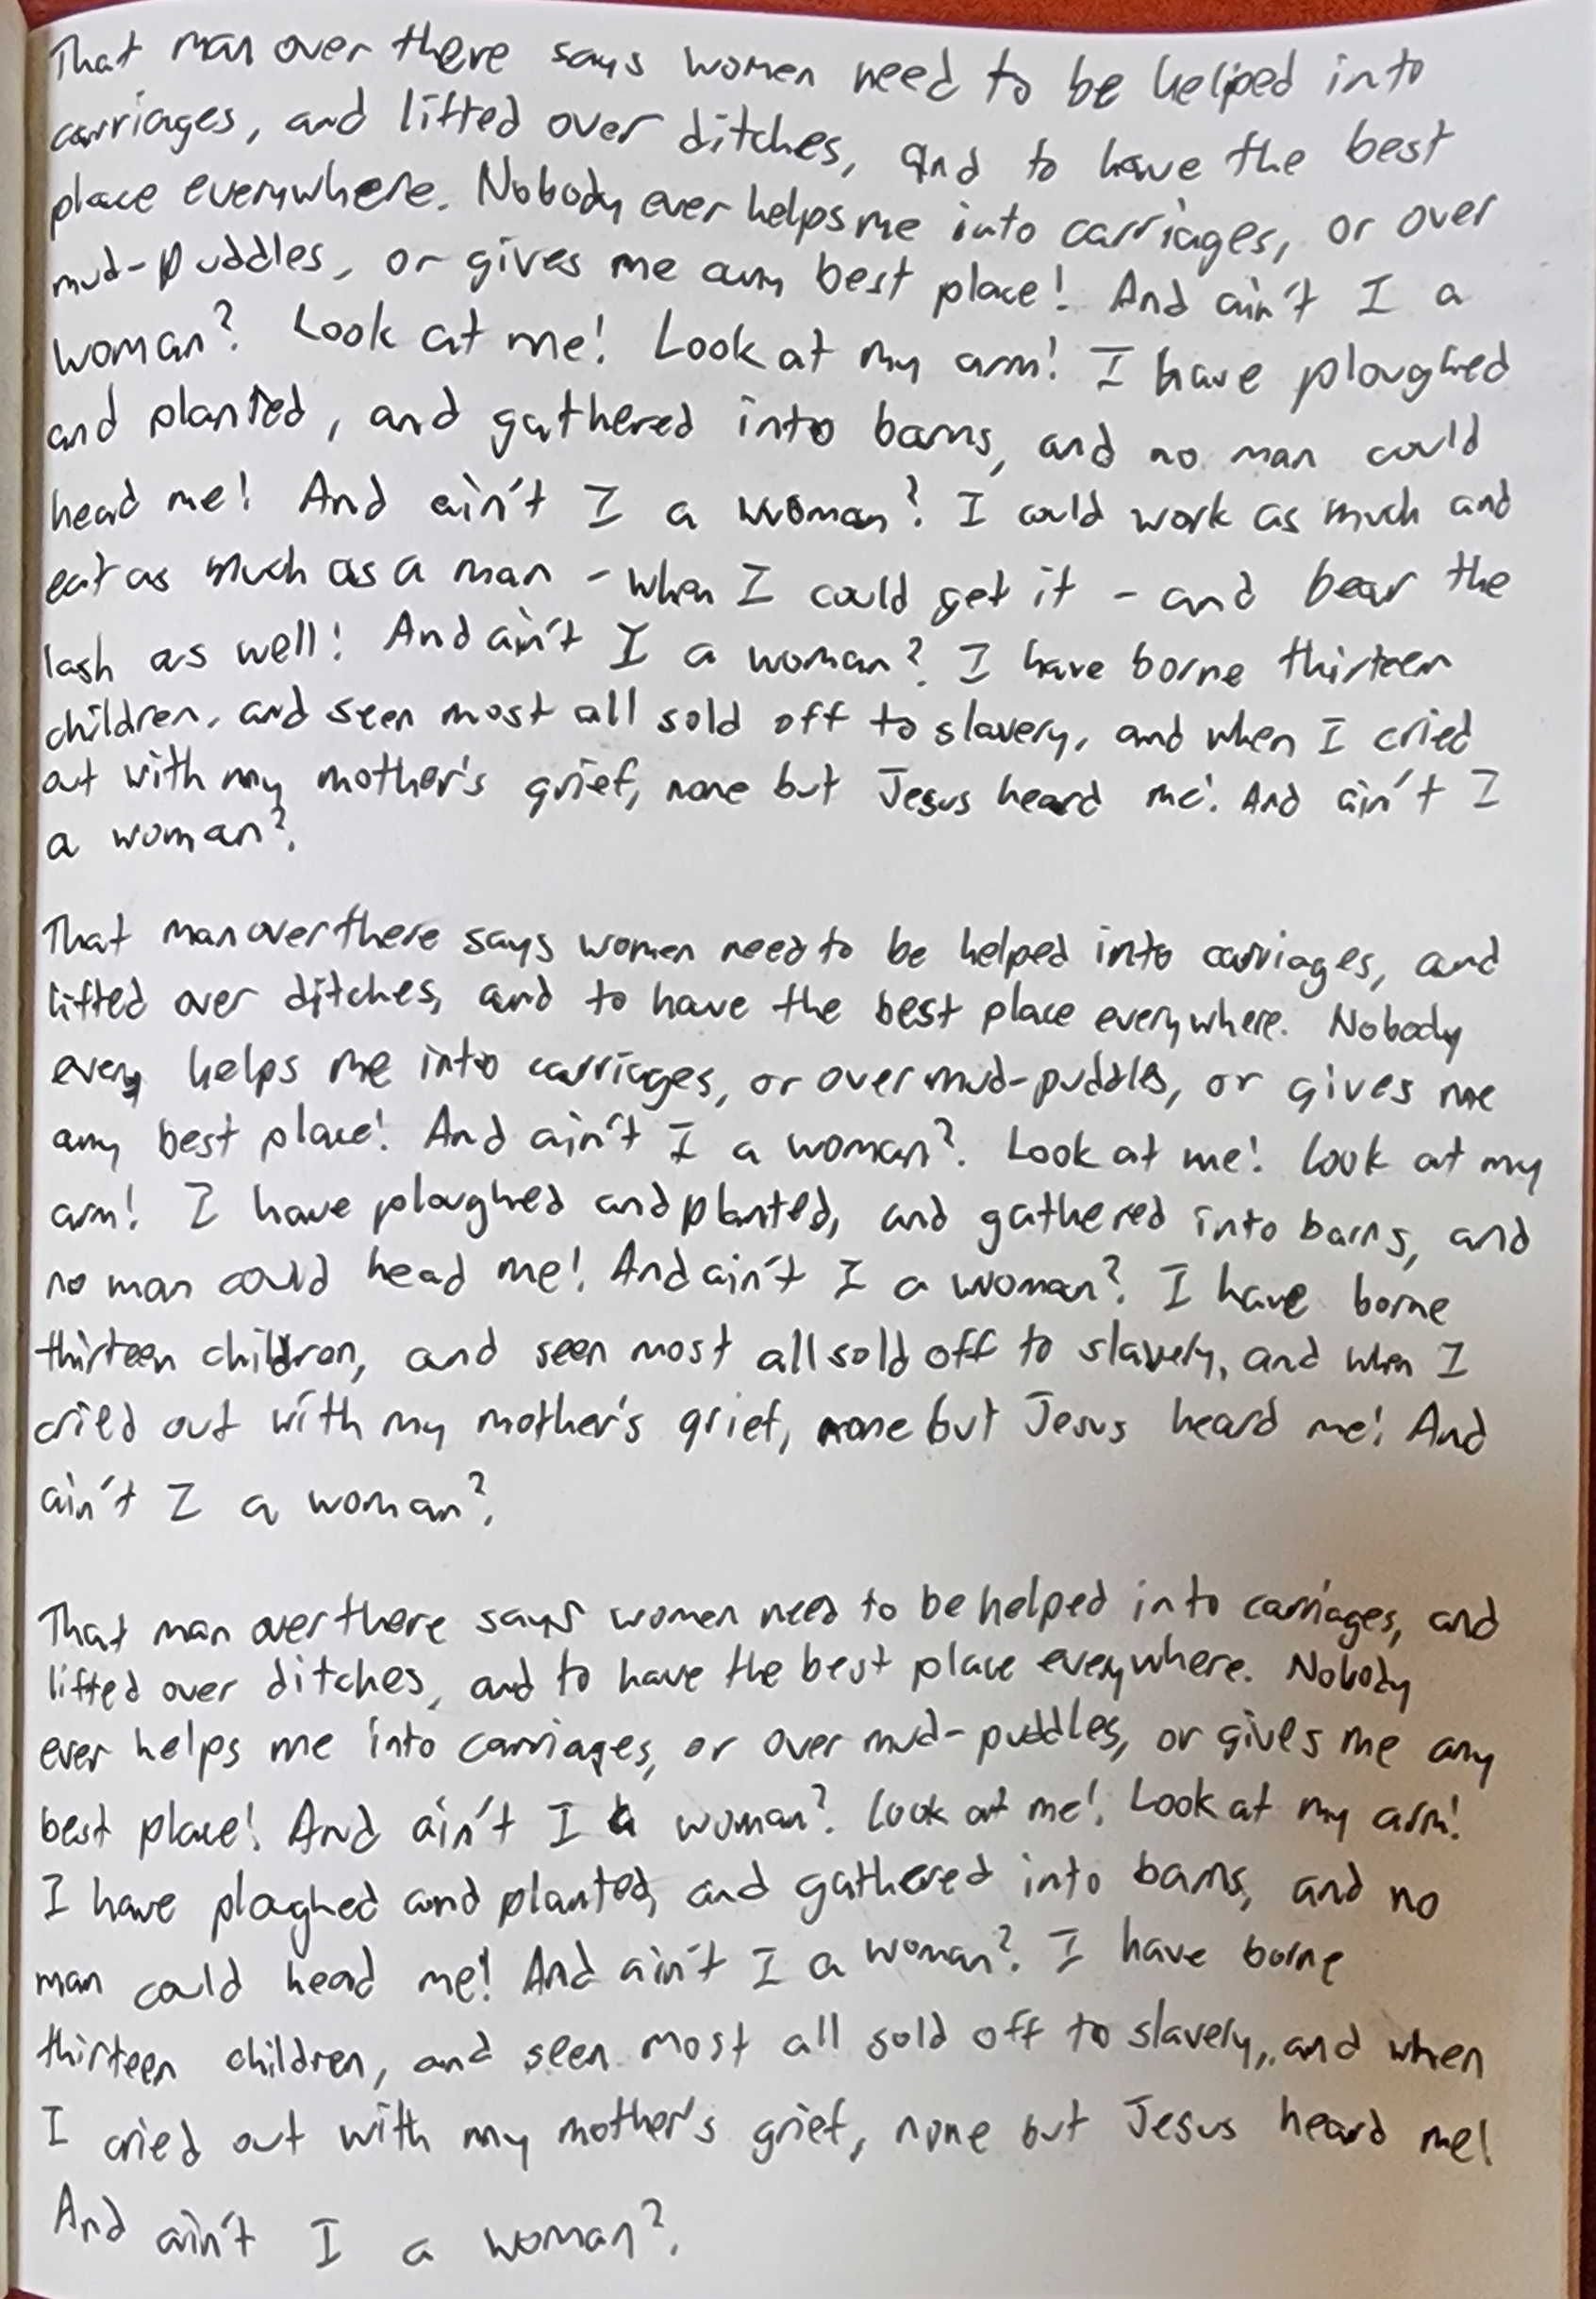 That man over there says women need to be helped into
carriages, and lifted over ditches, and to have the best
place everywhere. Nobody ever helps me into carriages, or over
mud-puddles, or gives me any best place! And ain't I a
woman? Look at me! Look at my arm! I have ploughed
and planted, and gathered into barns, and no man could
head me! And ain't I a woman? I could work as much and
eat as much as a man - when I could get it - and bear the
lash as well! And ain't I a woman? I have borne thirteen
children, and seen most all sold off to slavery, and when I cried
out with my mother's grief, none but Jesus heard me! And ain't I
a woman?
That man over there says women need to be helped into carriages, and
lifted over ditches, and to have the best place everywhere. Nobody
every helps me into carriages, or over mud-puddles, or gives me
any best place! And ain't I a woman? Look at me! Look at my
arm! I have ploughed and planted, and gathered into barns, and
no man could head me! And ain't I a woman? I have borne
thirteen children, and seen most all sold off to slavery, and when I
cried out with my mother's grief, none but Jesus heard me! And
ain't I a woman?
That man over there says women need to be helped into carriages, and
lifted over ditches, and to have the best place everywhere. Nobody
ever helps me into carriages, or over mud-puddles, or gives me any
best place! And ain't I a woman? Look at me! Look at my arm!
I have ploughed and planted, and gathered into barns, and no
man could head me! And ain't I a woman? I have borne
thirteen children, and seen most all sold off to slavery, and when
I cried out with my mother's grief, none but Jesus heard me!
And ain't I a woman?